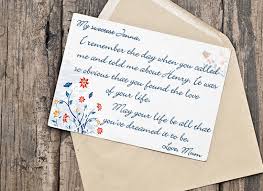 My success Jenna,
I remember the day when you called
me and told me about Henry. It was
so obvious that you found the love
of your life.
May your life be all that
you've dreamed it to be.
Love Mum